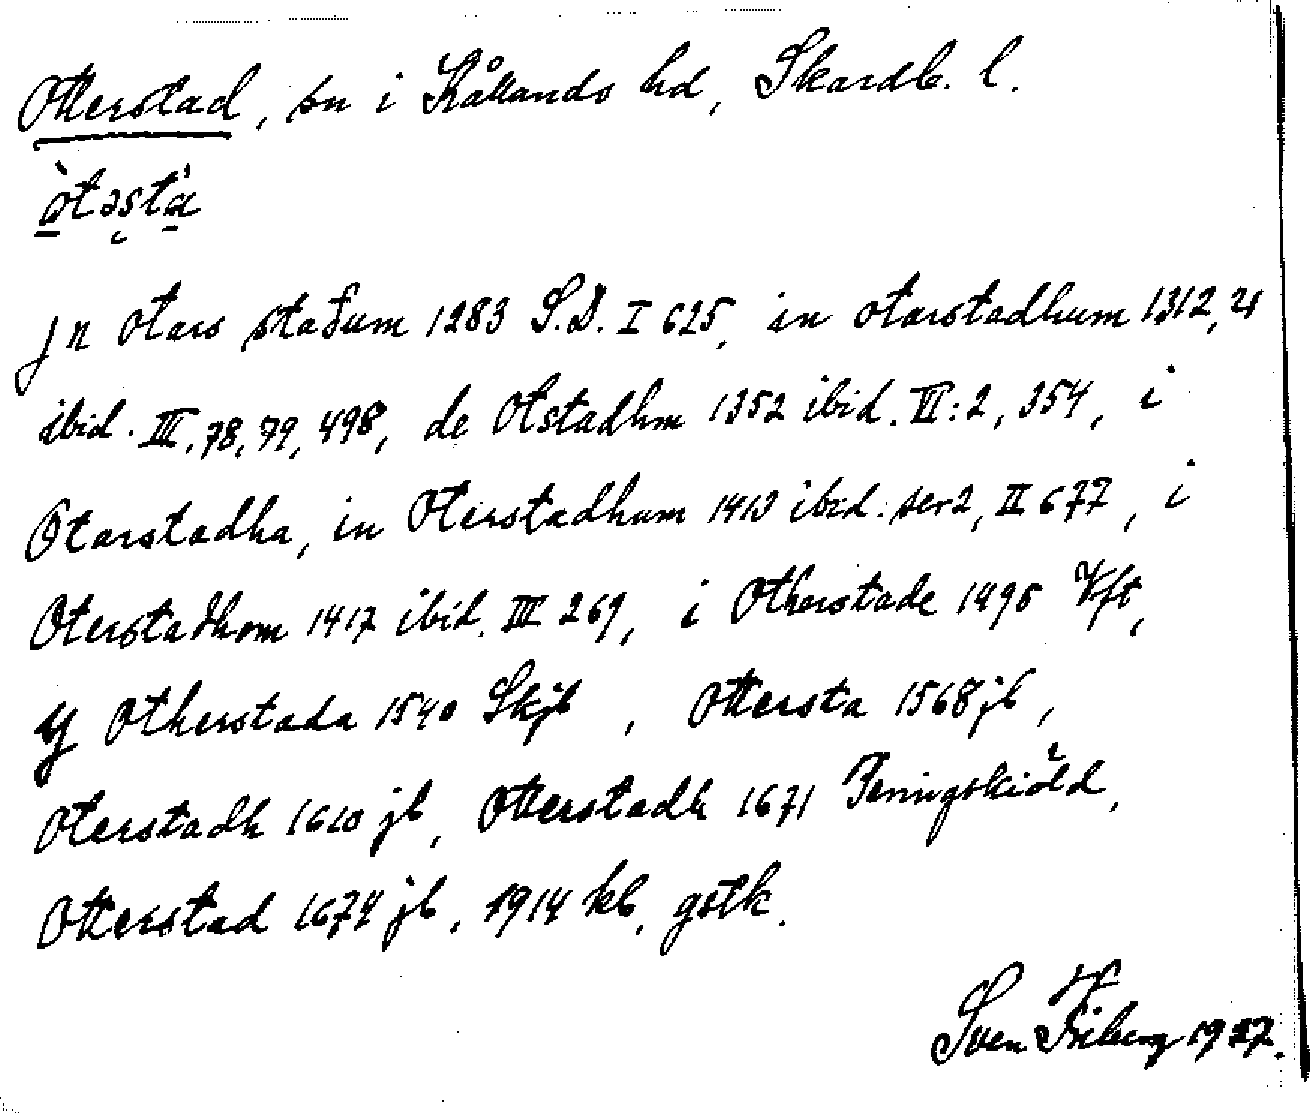 Otterstad, sn i Kållands hd, Skarab. l.
òtəs̨tà
Jn Otars staðum 1283 S.D. I 625, in Otarstadhum 1312, 21
ibid. III, 78, 79, 498, de Otstadhm 1352 ibid. VI:2, 354, i
Otarstadha, in Oterstadhum 1413 ibid. ser 2, II 677, i
Oterstadhom 1417 ibid. III 269, i Otherstade 1495 Vft,
Y Otherstada 1540 Skjb, Ottersta 1568 jb,
Oterstadh 1610 jb, Otterstadh 1671 Peringskiöld,
Otterstad 1674 jb, 1914 kb, gstk.
Sven Friberg 1927.